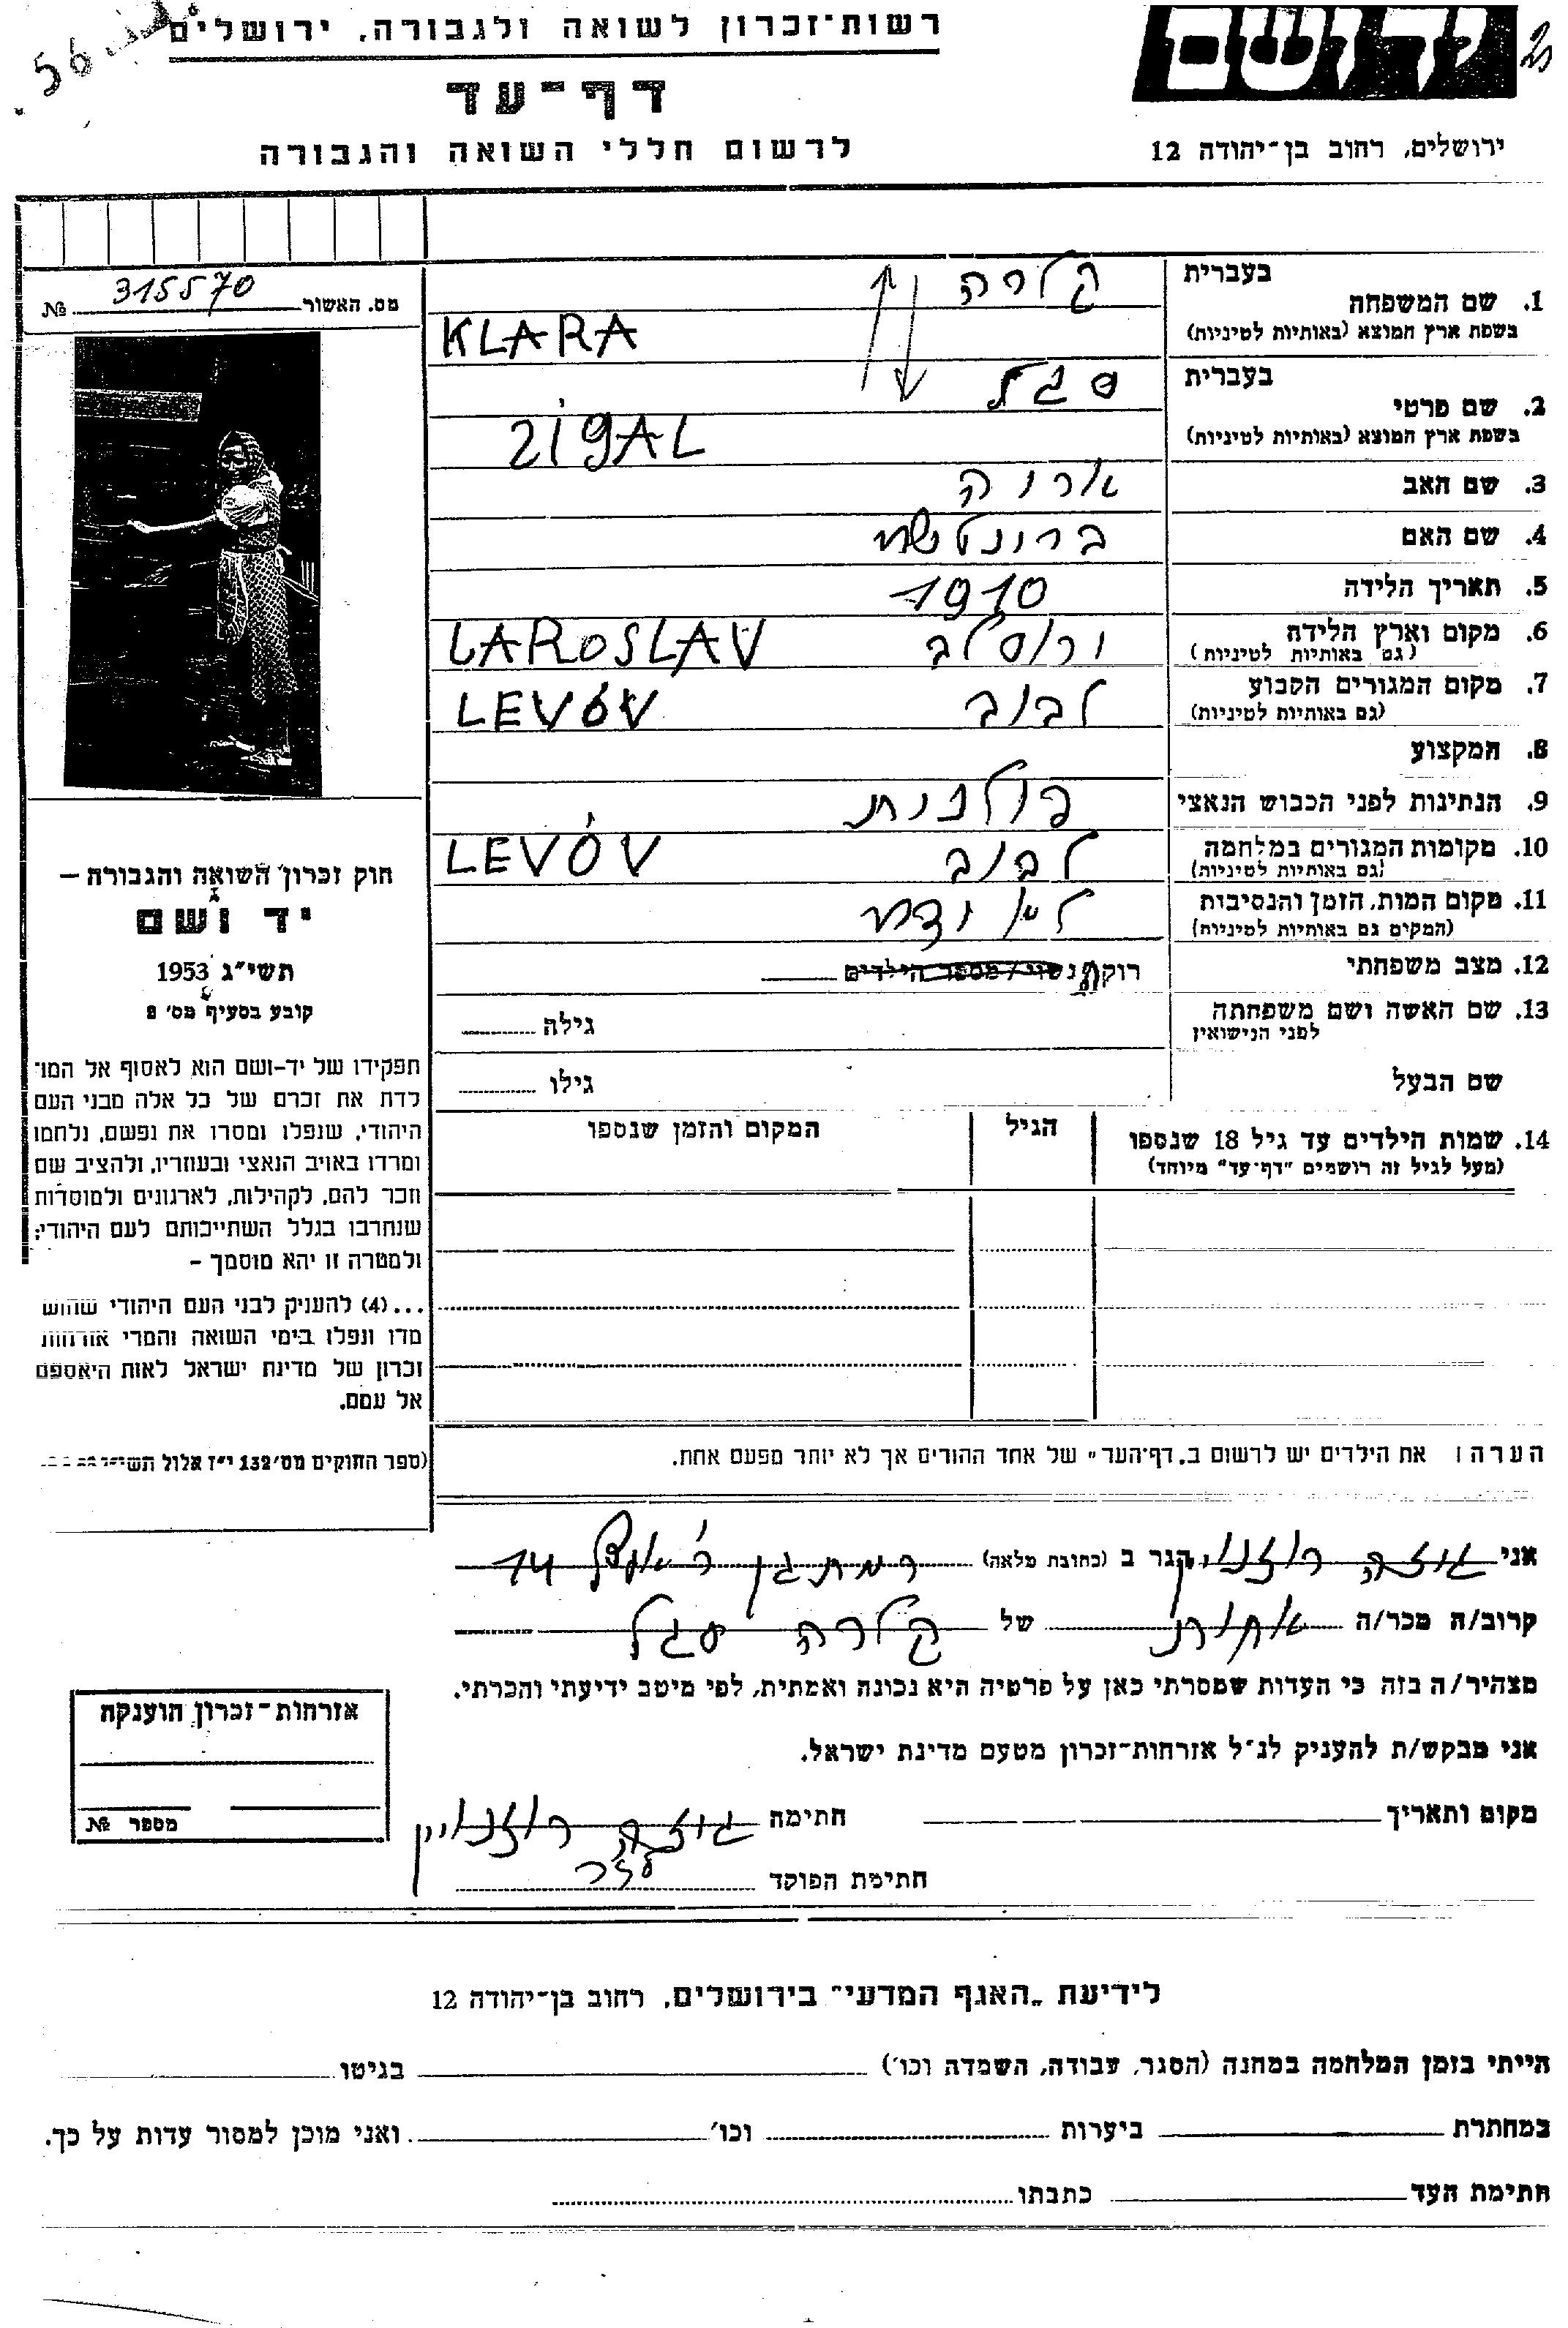 56
רשות־זכרון לשואה ולגבורה, ירושלים
דף־עד
לרשום חללי השואה והגבורה
ירושלים, רחוב בן־יהודה 12
מס. האשור 315570 №
1. שם המשפחה
בעברית קלרה
בשפת ארץ המוצא (באותיות לטיניות) KLARA
2. שם פרטי
בעברית סגל
בשפת ארץ המוצא (באותיות לטיניות) ZIGAL
3. שם האב אריה
4. שם האם
5. תאריך הלידה 1910
6. מקום וארץ הלידה ירוסלב LAROSLAV
(גם באותיות לטיניות)
7. מקום המגורים הקבוע לבוב LEVÓV
(גם באותיות לטיניות)
8. המקצוע
9. הנתינות לפני הכבוש הנאצי פולנית
10. מקומות המגורים במלחמה לבוב LEVÓV
(גם באותיות לטיניות)
11. מקום המות, הזמן והנסיבות לא ידוע
(המקום גם באותיות לטיניות)
12. מצב משפחתי רוקה נשוי / מספר הילדים
13. שם האשה ושם משפחתה גילה
לפני הנישואין
שם הבעל גילו
14. שמות הילדים עד גיל 18 שנספו הגיל המקום והזמן שנספו
(מעל לגיל זה רושמים "דף־עד" מיוחד)
חוק זכרון השואה והגבורה —
יד ושם
תשי"ג 1953
קובע בסעיף מס׳ 2
תפקידו של יד-ושם הוא לאסוף אל המו־
לדת את זכרם של כל אלה מבני העם
היהודי, שנפלו ומסרו את נפשם, נלחמו
ומרדו באויב הנאצי ובעוזריו, ולהציב שם
וזכר להם, לקהילות, לארגונים ולמוסדות
שנחרבו בגלל השתייכותם לעם היהודי;
ולמטרה זו יהא מוסמך –
...(4) להעניק לבני העם היהודי שהוש־
מדו ונפלו בימי השואה והמרי אזרחות
זכרון של מדינת ישראל לאות היאספם
אל עמם.
(ספר החוקים מס׳ 132 י"ז אלול תשי"ג
הערה: את הילדים יש לרשום ב„דף־העד" של אחד ההורים אך לא יותר מפעם אחת.
אני גוזה רוזנוייק הגר ב (כתובת מלאה) רמת גן 14
קרוב/ה מכר/ה אחות של קלרה סגל
מצהיר/ה בזה כי העדות שמסרתי כאן על פרטיה היא נכונה ואמתית, לפי מיטב ידיעתי והכרתי.
אני מבקש/ת להעניק לנ"ל אזרחות־זכרון מטעם מדינת ישראל.
מקום ותאריך חתימה גוזה רוזנוייק
חתימת הפוקד
אזרחות־זכרון הוענקה
מספר №
לידיעת „האגף המדעי" בירושלים, רחוב בן־יהודה 12
הייתי בזמן המלחמה במחנה (הסגר, עבודה, השמדה וכו׳) בגיטו
במחתרת ביערות וכו׳ ואני מוכן למסור עדות על כך.
חתימת העד כתבתו